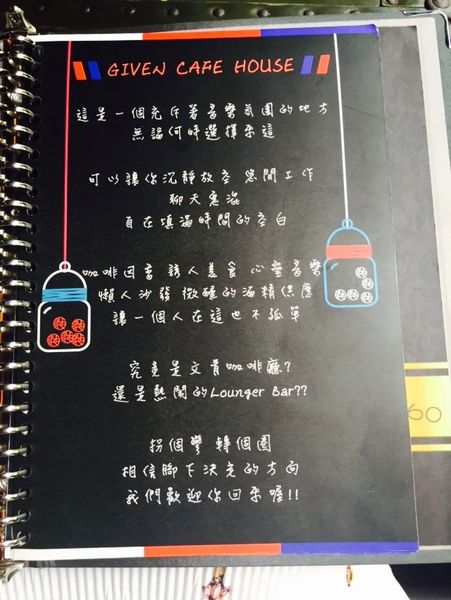 GIVEN CAFE HOUSE
這是一個充斥著音樂氛圍的地方
無論何時選擇來這
可以讓你沉靜放空 悠閒工作
聊天鬼混
自在填滿時間的空白
咖啡因香 誘人美食 心靈音樂
懶人沙發 微醺的酒精供應
讓一個人在這也不孤單
究竟是文青咖啡廳?
還是熱鬧的Lounger Bar??
拐個彎 轉個圈
相信腳下決定的方向
我們歡迎你回來喔!!
60